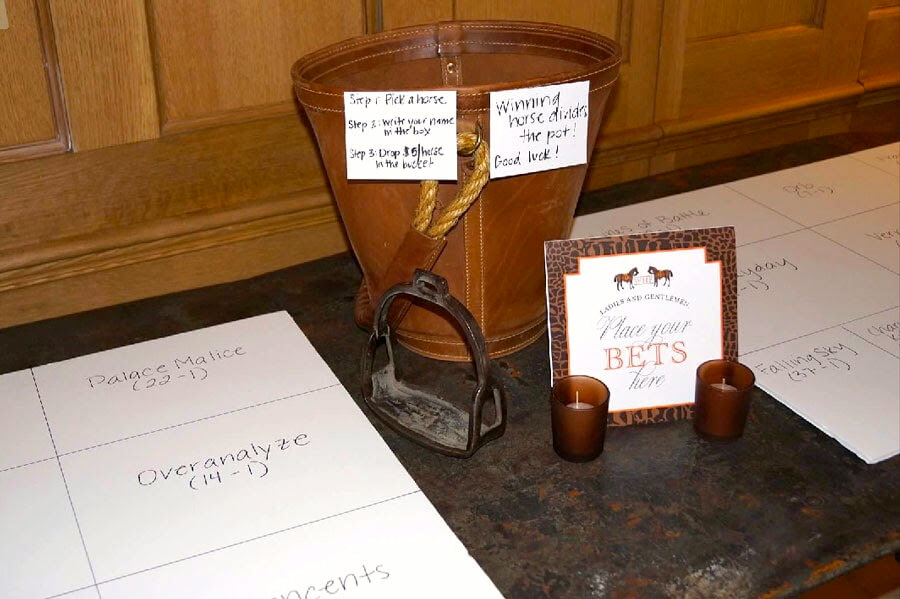 Step 1: Pick a horse
Step 2: Write your name
in the box
Step 3: Drop $5/horse
in the bucket
Winning
horse divides
the pot!
Good luck!
LADIES AND GENTLEMEN
Place your
BETS
here
Palace Malice
(22-1)
Overanalyze
(14-1)
of Battle
Orb
Falling Sky
(37-1)